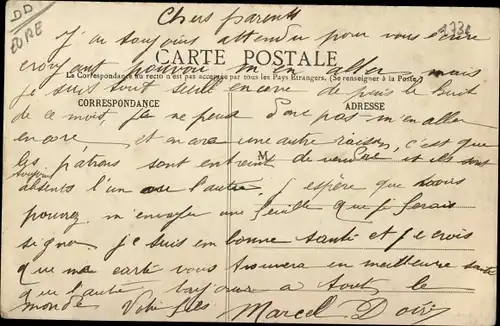 DD
EURE
Chers parents
J'ai toujours attendu pour vous écrire
CARTE POSTALE
croyant pouvoir m'en aller mais
La Correspondance au recto n'est pas acceptée par tous les Pays Étrangers. (Se renseigner à la Poste)
je suis tout seul encore depuis le huit
CORRESPONDANCE
ADRESSE
de ce mois je ne peux donc pas m'en aller
encore et encore une autre raison, c'est que
M
les patrons sont entrain de vendre et ils sont
toujours
absents l'un ou l'autre. j'espère que vous
pourrez m'envoyer une feuille que je ferais
signer je suis en bonne santé et je crois
que ma carte vous trouvera en meilleure santé
que l'autre bonjour a tout le
monde Votre fils Marcel